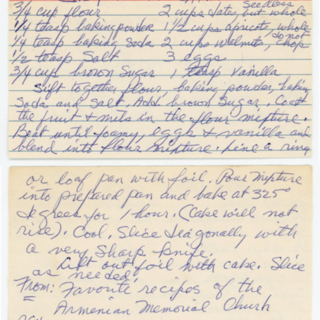 Seedless
3/4 cup flour 2 cups dates, but whole
1/4 teasp baking powder 1 1/2 cups apricots, whole
1/4 teasp baking soda 2 cups walnuts, chop
1/2 teasp salt 3 eggs
3/4 cup brown sugar 1 teasp vanilla
Sift together flour, baking powder, baking
soda and salt. Add brown sugar. Coat
the fruit & nuts in the flour mixture.
Beat until foamy, eggs & vanilla and
blend into flour mixture. Line a ring
or loaf pan with foil. Pour mixture
into prepared pan and bake at 325°
degrees for 1 hour. (Cake will not
rise). Cool, Slice diagonally with
a very sharp knife.
Lift out foil with cake. Slice
as needed.
From: Favorite recipes of the
Armenian Memorial Church